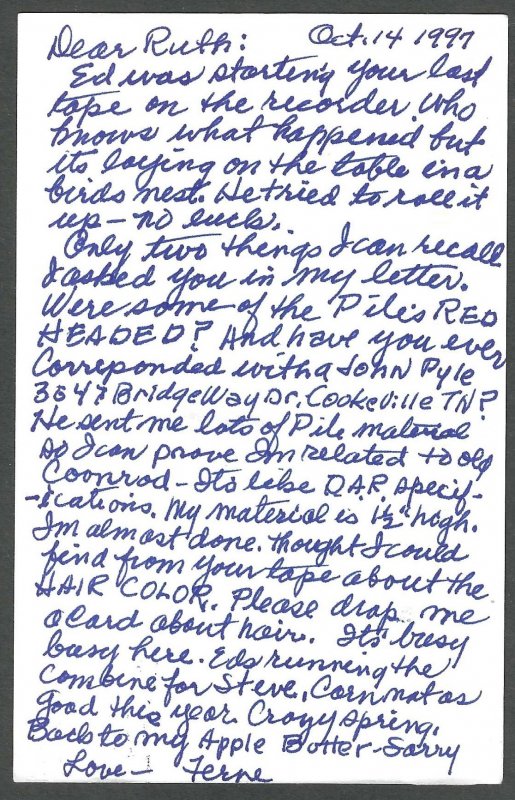 Dear Ruth: Oct. 14 1997
Ed was starting your last
tape on the recorder. Who
knows what happened but
its laying on the table in a
birds nest. He tried to roll it
up - no luck.
Only two things I can recall
I asked you in my letter.
Were some of the Pile's RED
HEADED? And have you ever
Correponded with a John Pyle
3647 BridgeWay Dr. Cookeville TN?
He sent me lots of Pile material
so I can prove Im related to old
Coonrod - Its like D.A.R. specif-
-ications. My material is 1½" high.
Im almost done. Thought I could
find from your tape about the
HAIR COLOR. Please drop me
a Card about hair. It's busy
busy here. Eds running the
combine for Steve. Corn not as
good this year. Crazy spring.
Back to my Apple Butter - Sorry
Love - Ferne